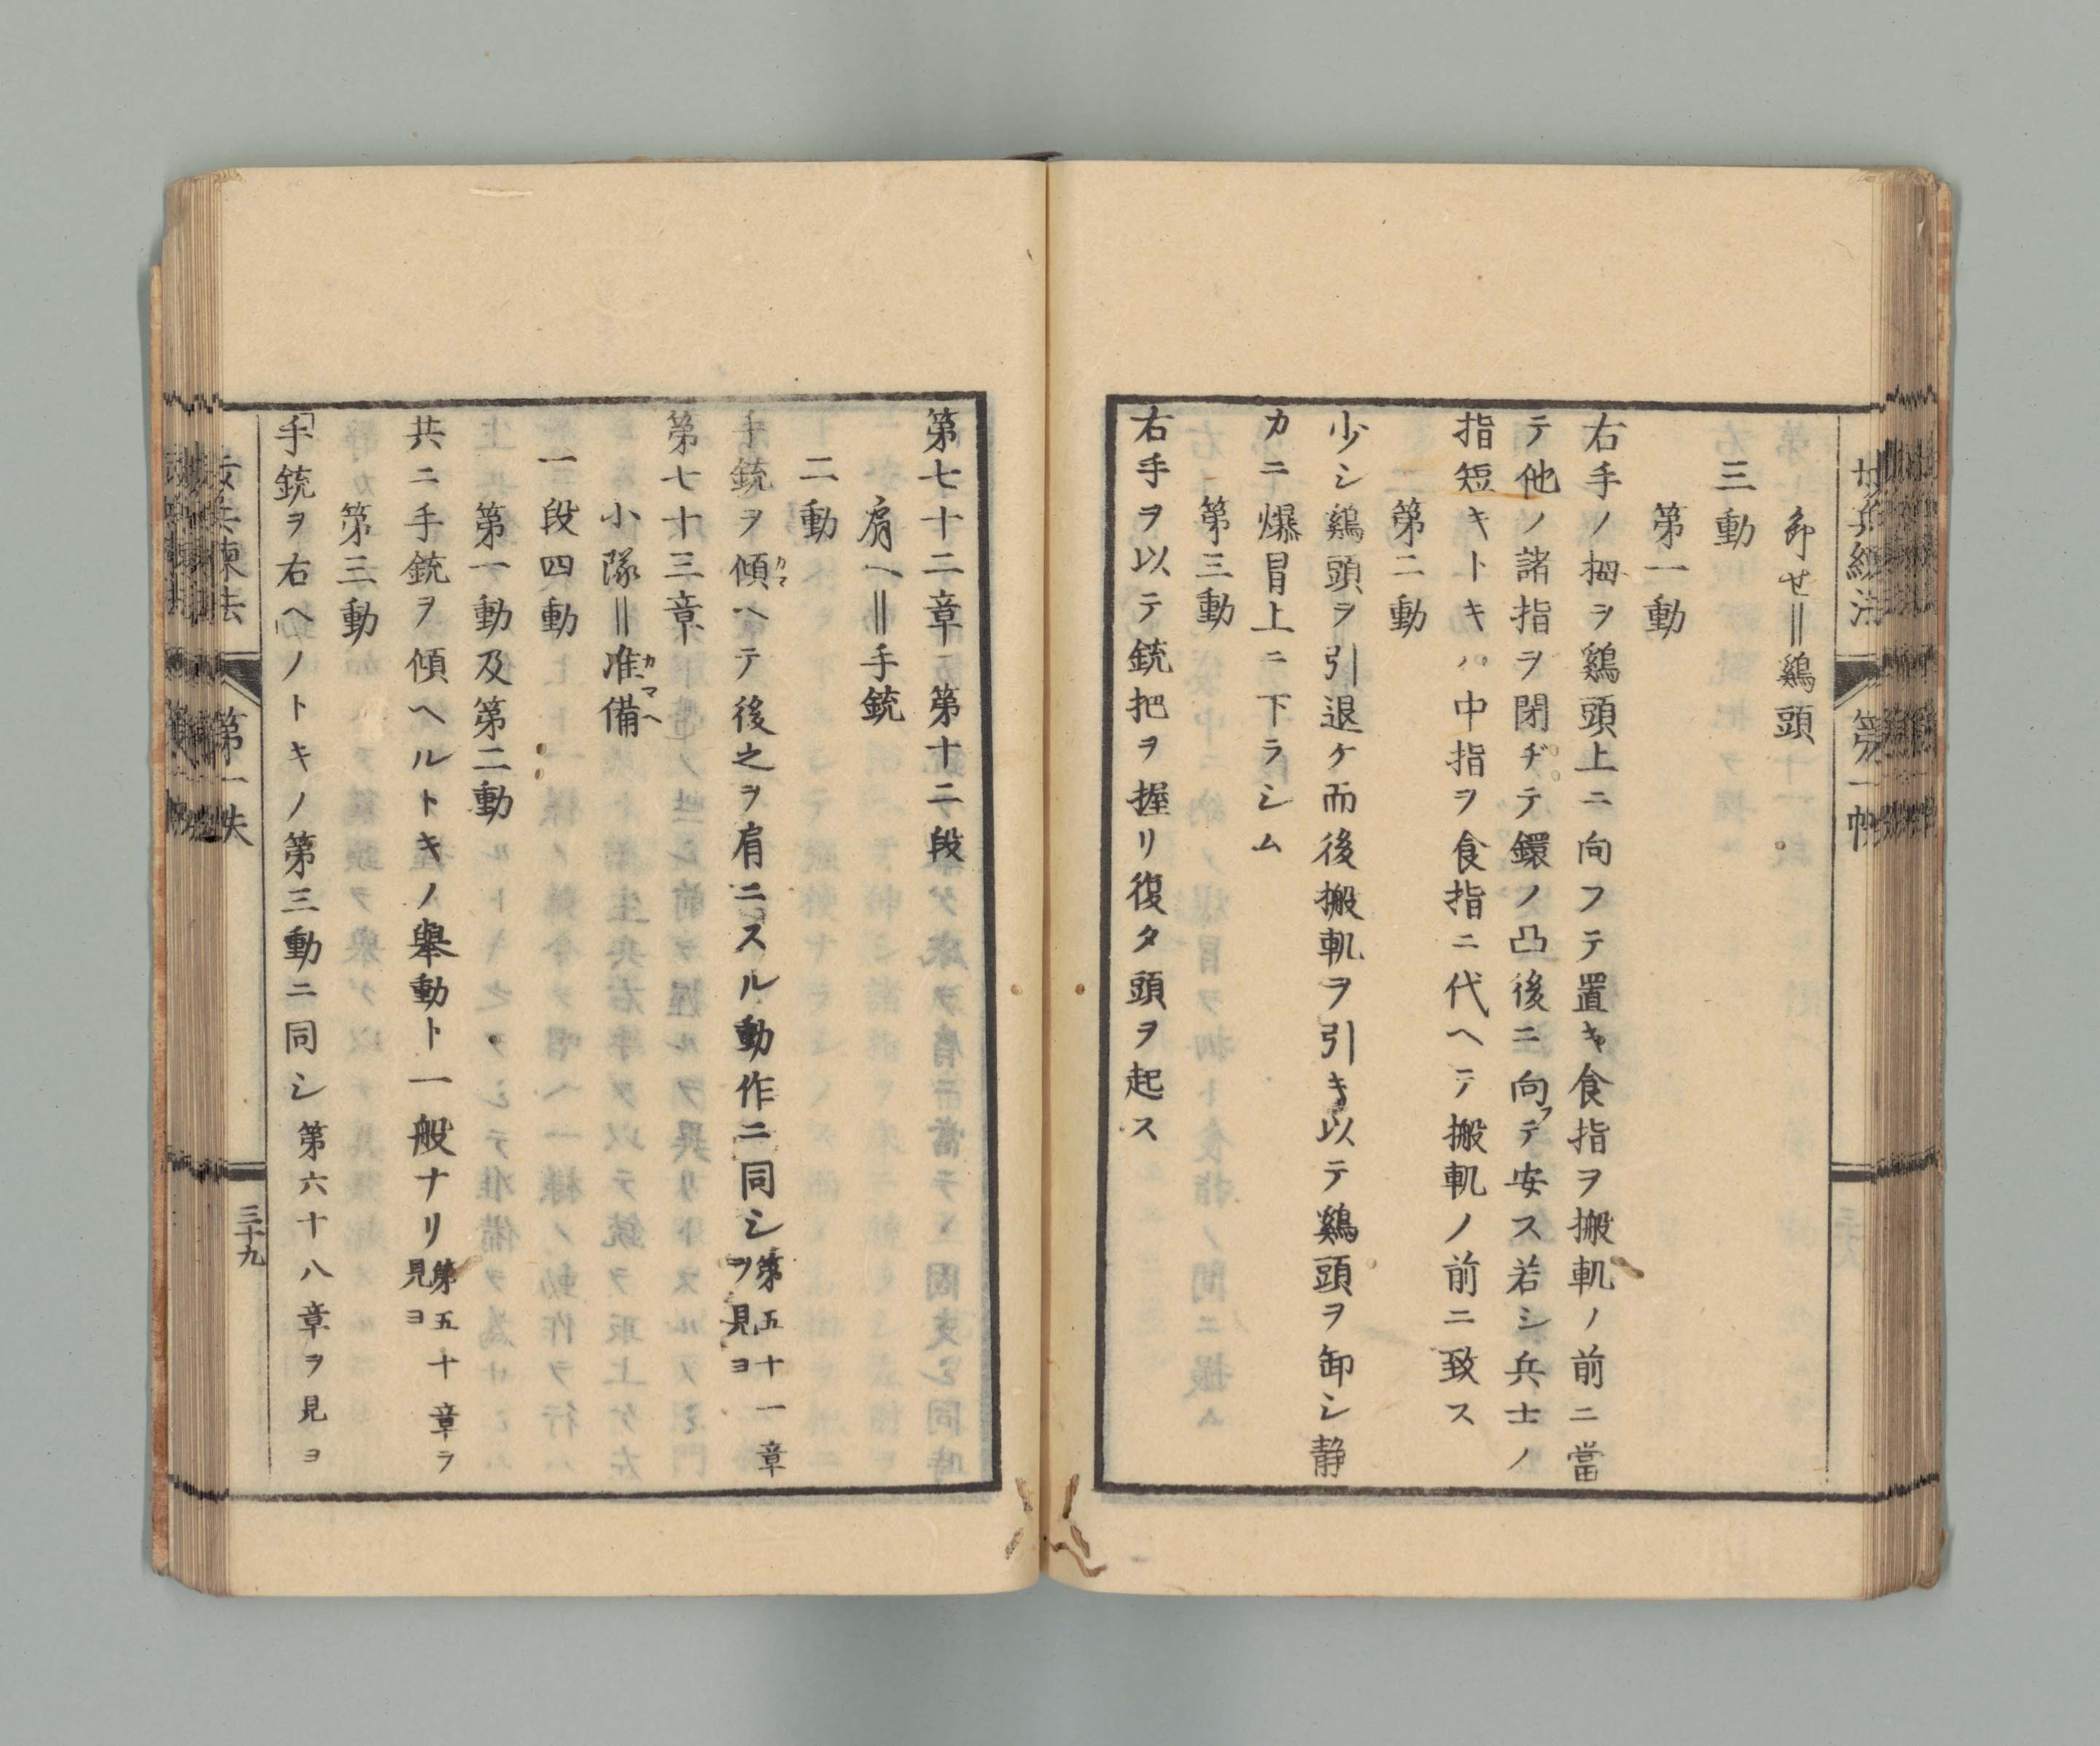 卸せ‖鷄頭
三動
第一動
右手ノ拇ヲ鷄頭上ニ向フテ置キ食指ヲ搬軏ノ前ニ當
テ他ノ諸指ヲ閉ヂテ鐶ノ凸後ニ向フテ安ス若シ兵士ノ
指短キトキハ中指ヲ食指ニ代ヘテ搬軏ノ前ニ致ス
第二動
少シ鷄頭ヲ引退ケ而後搬軏ヲ引き以テ鷄頭ヲ卸シ静
カニ爆冒上ニ下ラシム
第三動
右手ヲ以テ銃把ヲ握リ復タ頭ヲ起ス
第七十二章 第十二段
肩ヘ‖手銃
二動
手銃ヲ傾カマヘテ後之ヲ肩ニスル動作ニ同シ第五十一章ヲ見ヨ
第七十三章
小隊‖准備カマヘ
一段四動
第一動及第二動
共ニ手銃ヲ傾ヘルトキノ舉動ト一般ナリ第五十章ヲ見ヨ
第三動
手銃ヲ右ヘノトキノ第三動ニ同シ第六十八章ヲ見ヨ
第一帙
三十九